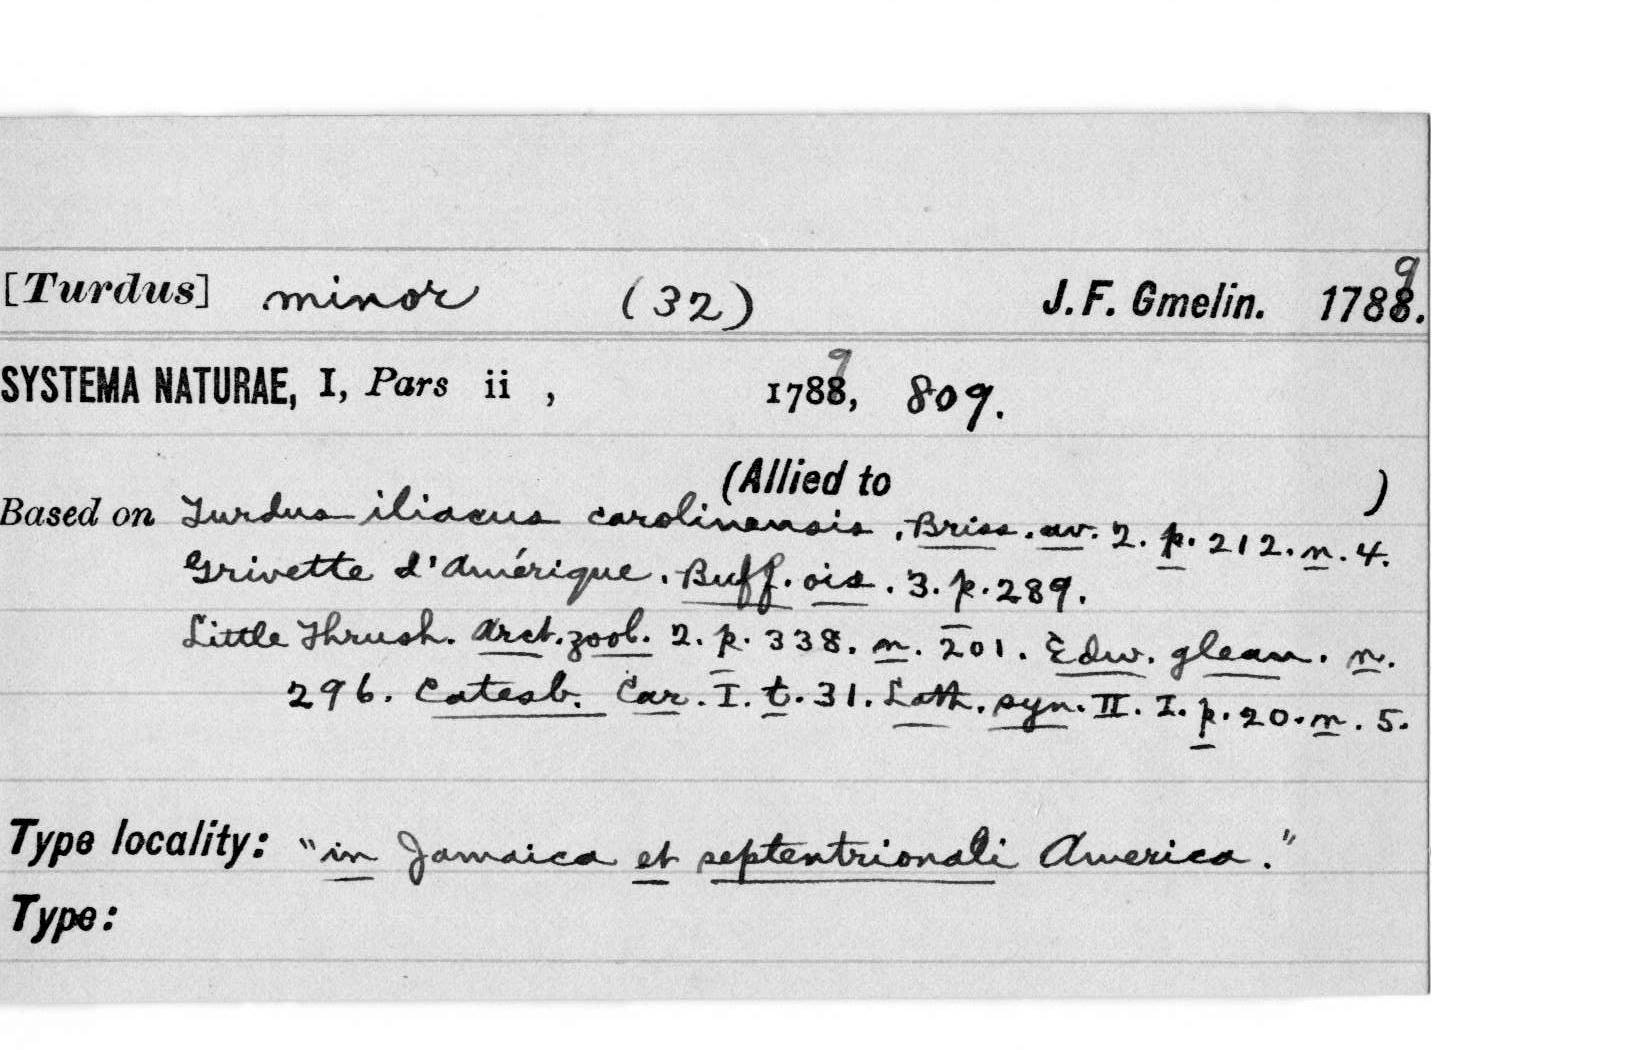 [Turdus] minor (32) J. F. Gmelin. 1788. 9
SYSTEMA NATURAE, I, Pars ii , 1788, 9 809.
(Allied to )
Based on Turdus iliacus carolinensis. Briss. av. 2. p. 212. n. 4.
Grivette d'Amérique. Buff. ois. 3. p. 289.
Little Thrush. Arct. zool. 2. p. 338. n. 201. Edw. glean. n.
296. Catesb. Car. I. t. 31. Lath. syn. II. I. p. 20. n. 5.
Type locality: "in Jamaica et septentrionali America."
Type: